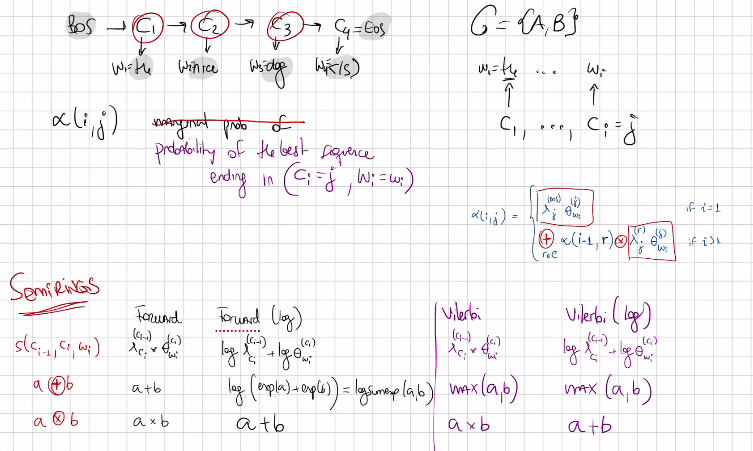 BOS → C₁ → C₂ → C₃ → C₄=EOS
w₁=the w₂=nice w₃=dog w₄=</S>
C = {A,B}
w₁=the ... wᵢ
C₁, ..., Cᵢ=j
α(i,j) marginal prob of
probability of the best sequence
ending in (Cᵢ=j, Wᵢ=wᵢ)
α(i,j) = { λⱼ^(BOS) θ_wᵢ^(j) if i=1
⊕_{r∈C} α(i-1, r) ⊗ λⱼ^(r) θ_wᵢ^(j) if i>1
SEMIRINGS
Forward Forward (log) Viterbi Viterbi (log)
s(cᵢ₋₁, cᵢ, wᵢ) λ_cᵢ^(cᵢ₋₁) × θ_wᵢ^(cᵢ) log λ_cᵢ^(cᵢ₋₁) + log θ_wᵢ^(cᵢ) λ_cᵢ^(cᵢ₋₁) × θ_wᵢ^(cᵢ) log λ_cᵢ^(cᵢ₋₁) + log θ_wᵢ^(cᵢ)
a ⊕ b a+b log (exp(a)+exp(b)) = logsumexp(a,b) max(a,b) max(a,b)
a ⊗ b a×b a+b a×b a+b